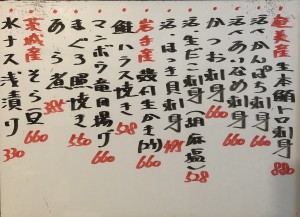 奄美産 生本鮪トロ刺身 880
活〆かんぱち刺身
活〆あいなめ刺身 660
かつお刺身 660
活・生だこ刺身(胡麻塩) 528
活・ほっき貝刺身 495
岩手産 殻付生かき(2ケ) 660
鮭ハラス焼き 528
マンボウ竜田揚げ 660
まぐろ照焼き 550
あら煮 385
茨城産 そら豆 660
水ナス浅漬け 330